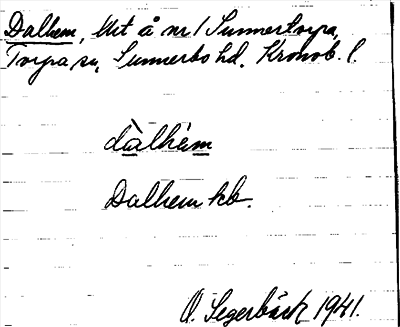 Dalhem, lht å nr 1 Sunnertorpa,
Torpa sn, Sunnerbo hd. Kronob. l.
dàlhém
Dalhem kb.
O. Segerbäck 1941.